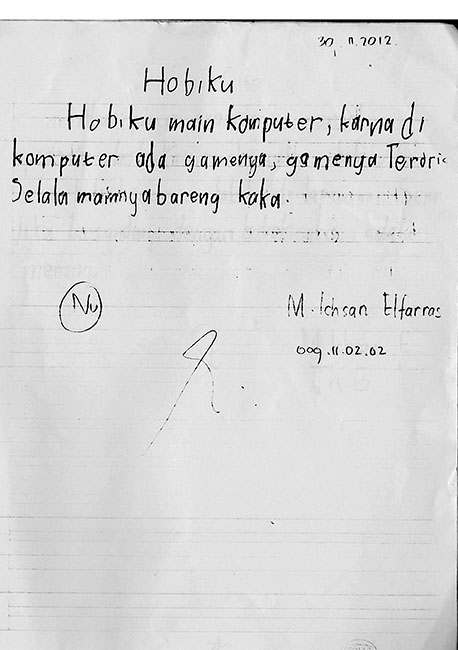 30 11.2012
Hobiku
Hobiku main komputer, karna di
komputer ada gamenya, gamenya Teroris
Selala mainnya bareng kaka.
Nu
M. Ichsan Elfarras
009.11.02.02